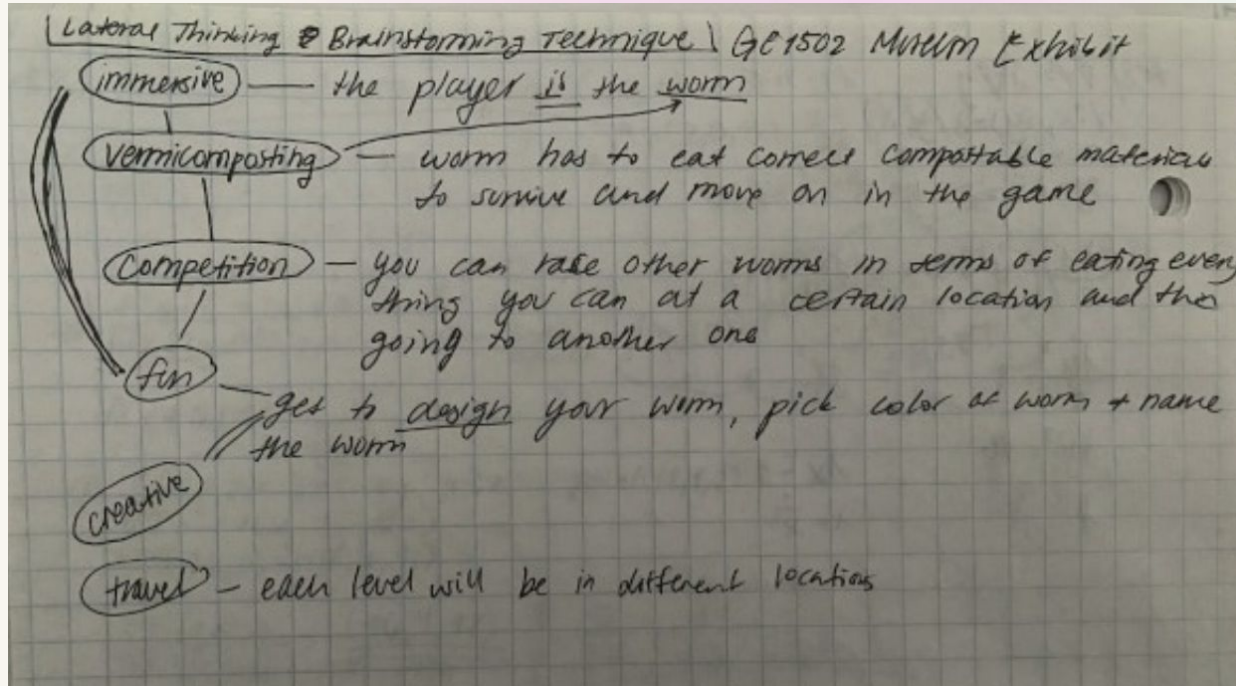 Lateral Thinking Brainstorming Technique | GE1502 Museum Exhibit
immersive — the player is the worm
vermicomposting — worm has to eat correct compostable materials
to survive and move on in the game
Competition — you can race other worms in terms of eating every
thing you can at a certain location and the
going to another one
fun
get to design your worm, pick color of worm + name
the worm
creative
travel — each level will be in different locations